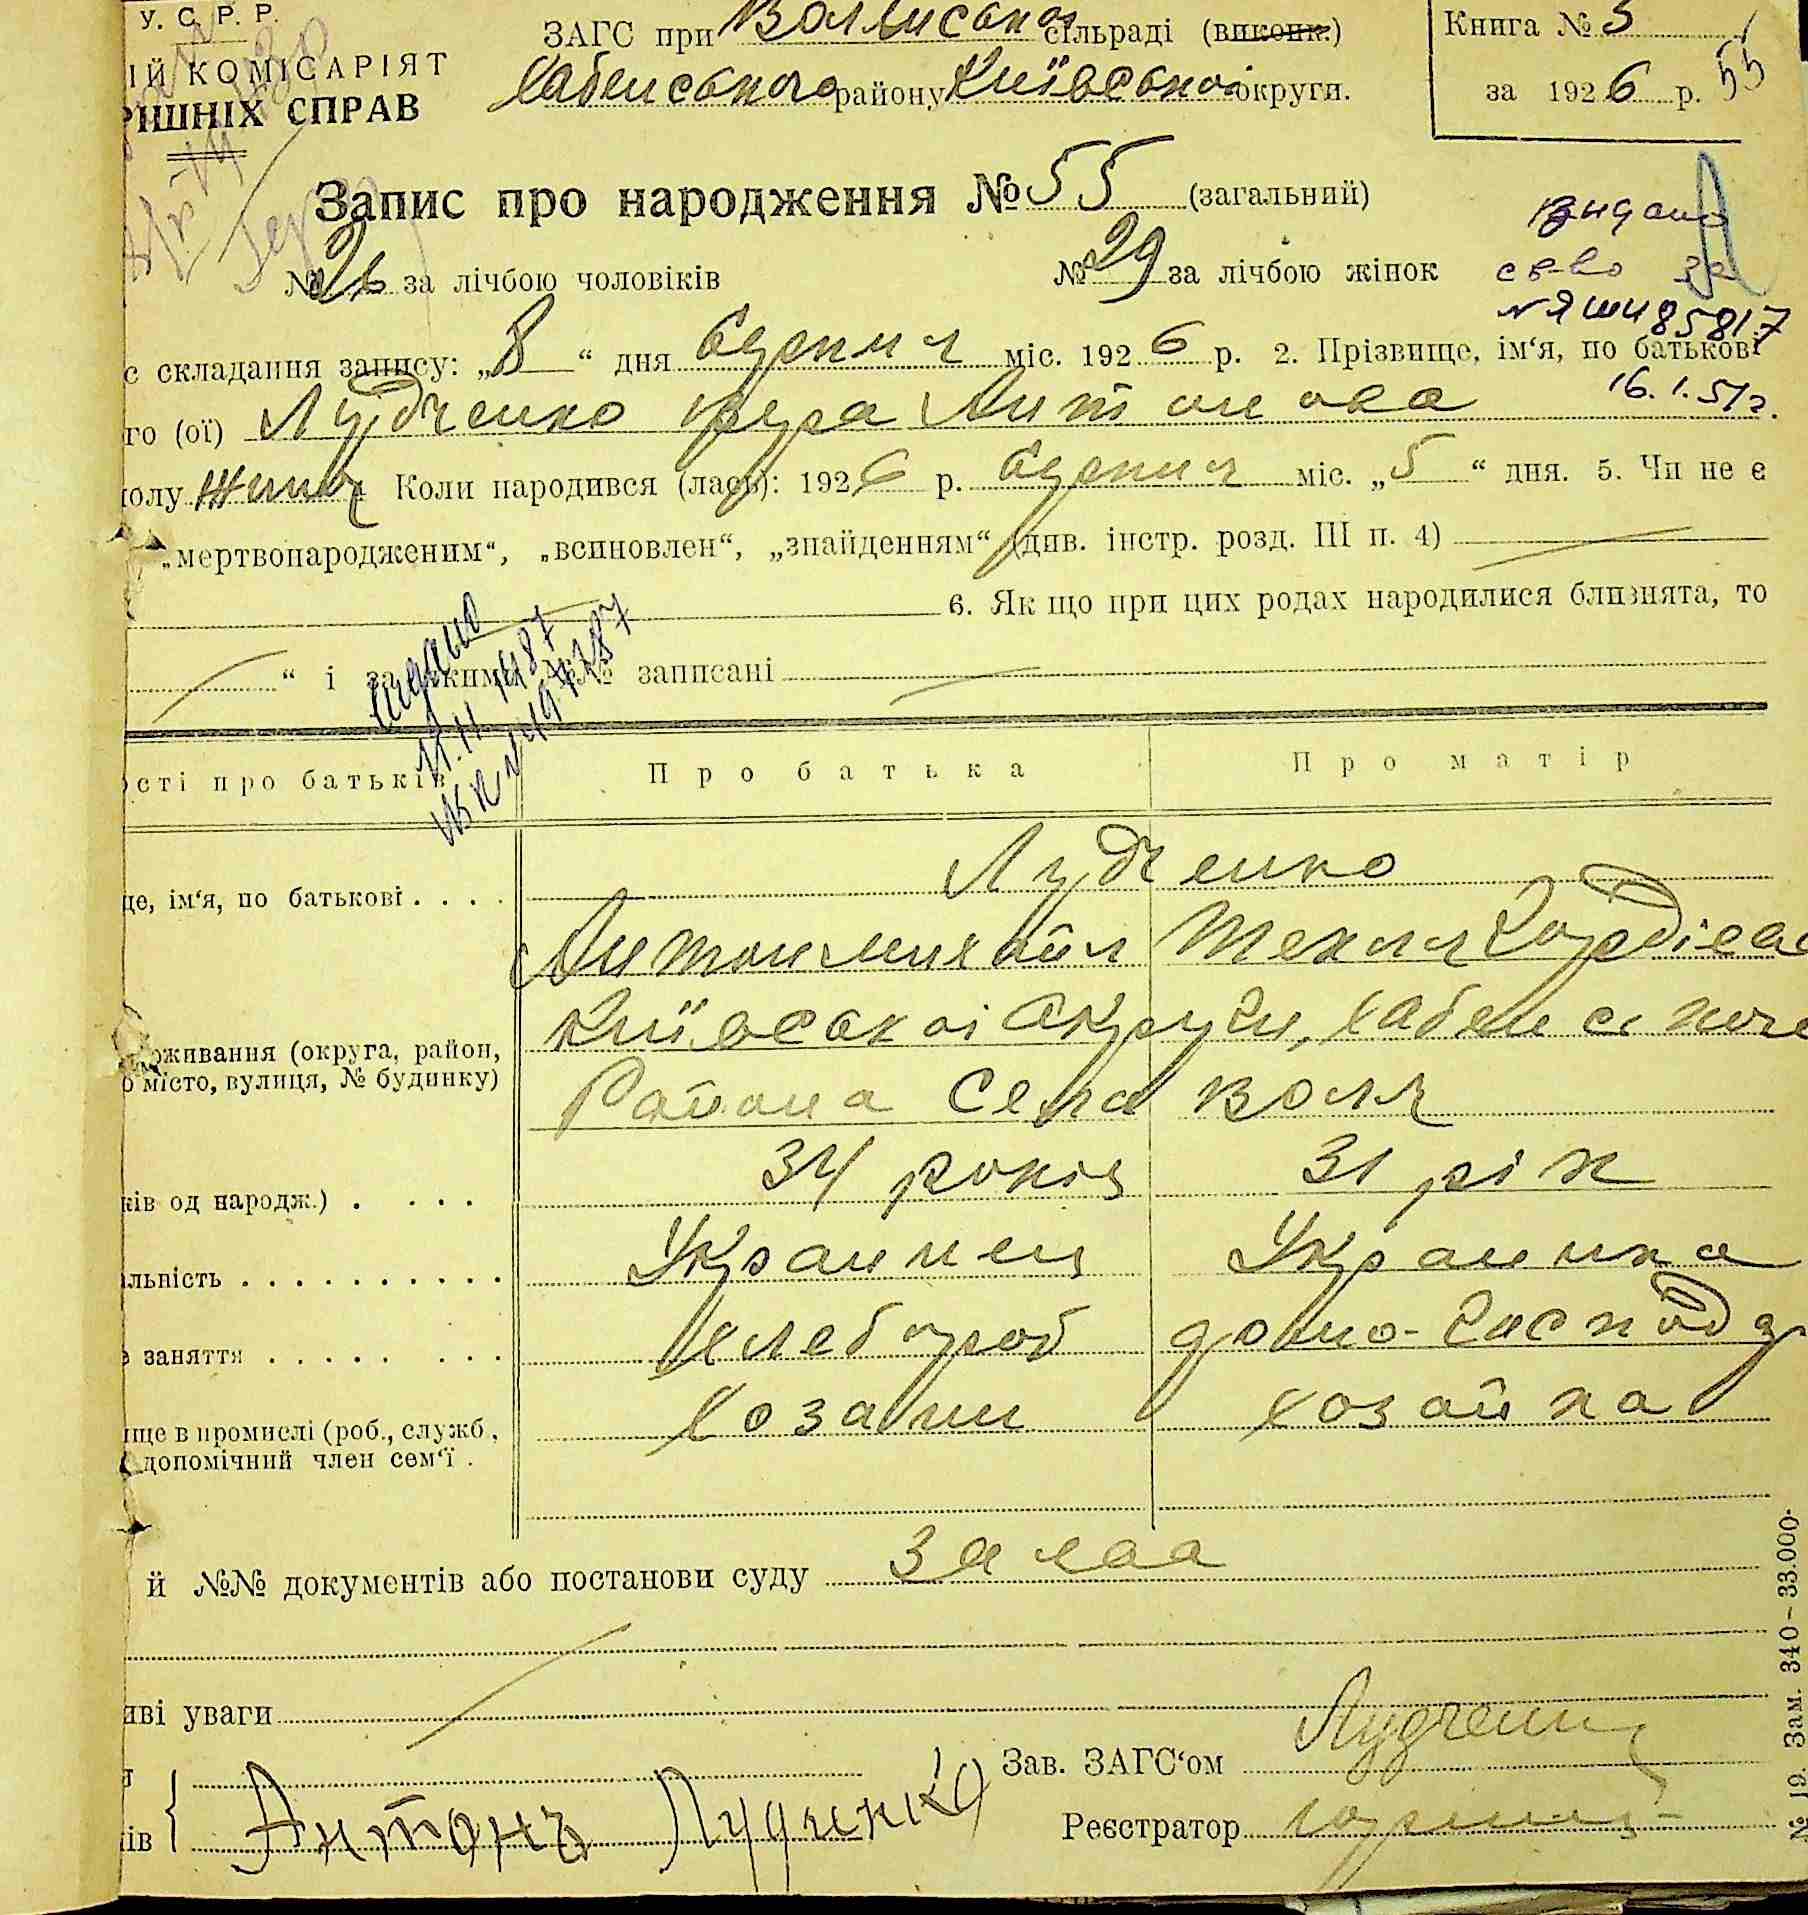 У. С. Р. Р.
ІЙ КОМІСАРІЯТ
РІШНІХ СПРАВ
ЗАГС при сільраді (виконк.)
Хабенського району Київської округи.
Книга № 3
за 1926 р.
55
Запис про народження № 55 (загальний)
№ 26 за лічбою чоловіків № 29 за лічбою жінок
Видано
св-во
85817
16.1.51г.
с складання запису: „8“ дня серпня міс. 1926 р. 2. Прізвище, ім'я, по батькові
го (ої) Лудченко Антонова
полу Коли народився (лась): 1926 р. серпня міс. „5“ дня. 5. Чи не є
„мертвонародженим“, „всиновлен“, „знайденням“ (див. інстр. розд. III п. 4)
6. Як що при цих родах народилися близнята, то
“ і за якими №№ записані
видано
11.11.1987
ості про батьків Про батька Про матір
Лудченко
це, ім'я, по батькові
Антон Михайл Текля Гордіева
Київської Округи, Хабенского
оживання (округа, район,
о місто, вулиця, № будинку)
Района Села Воля
34 років 31 рік
ків од народж.)
Украинец Украинка
льність
хлебороб домо-господ
е заняття
хозаин хозайка
ище в промислі (роб., служб.,
допомічний член сем'ї .
й №№ документів або постанови суду
иві уваги
Зав. ЗАГС'ом Лудченко
ів Антонъ Лудченко
Реєстратор
№ 19. Зам. 340–33.000.